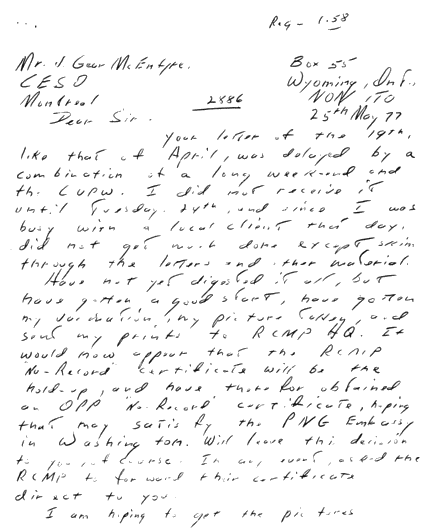 ... Reg - 1.58
Mr. J. Gear McEntyre. Box 55
CESO Wyoming, Ont.,
Montreal 2886 NON 1TO
Dear Sir. 25th May 77
Your letter of the 19th,
like that of April, was delayed by a
combination of a long weekend and
the CUPW. I did not receive it
until Tuesday 24th, and since I was
busy with a local client that day,
did not get much done except skim
through the letters and other material.
Have not yet digested it all, but
have gotten a good start, have gotten
my vaccination, my picture taken, and
sent my prints to RCMP HQ. It
would now appear that the RCMP
"No-Record" certificate will be the
hold-up, and have therefor obtained
an OPP "No-Record" certificate, hoping
that may satisfy the PNG Embassy
in Washington. Will leave this decision
to you of course. In any event, asked the
RCMP to forward their certificate
direct to you.
I am hoping to get the pictures